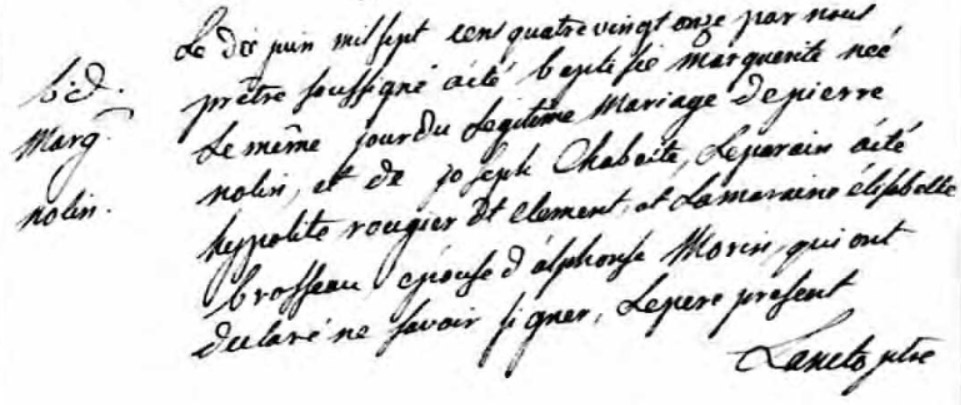 Le dix juin mil sept cens quatre vingt onze par nous
b.d. prêtre soussigné a été baptisée marguerite neé
Marg. Le même jour du Legitime Mariage de pierre
nolin. nolin, et de joseph Chaboite, Leparain a été
hyppolite rougier dt clement, et La maraine élisabette
brosseau epouse d'alphonse Morin, qui ont
declaré ne savoir signer, Le pere present
Lancto ptre